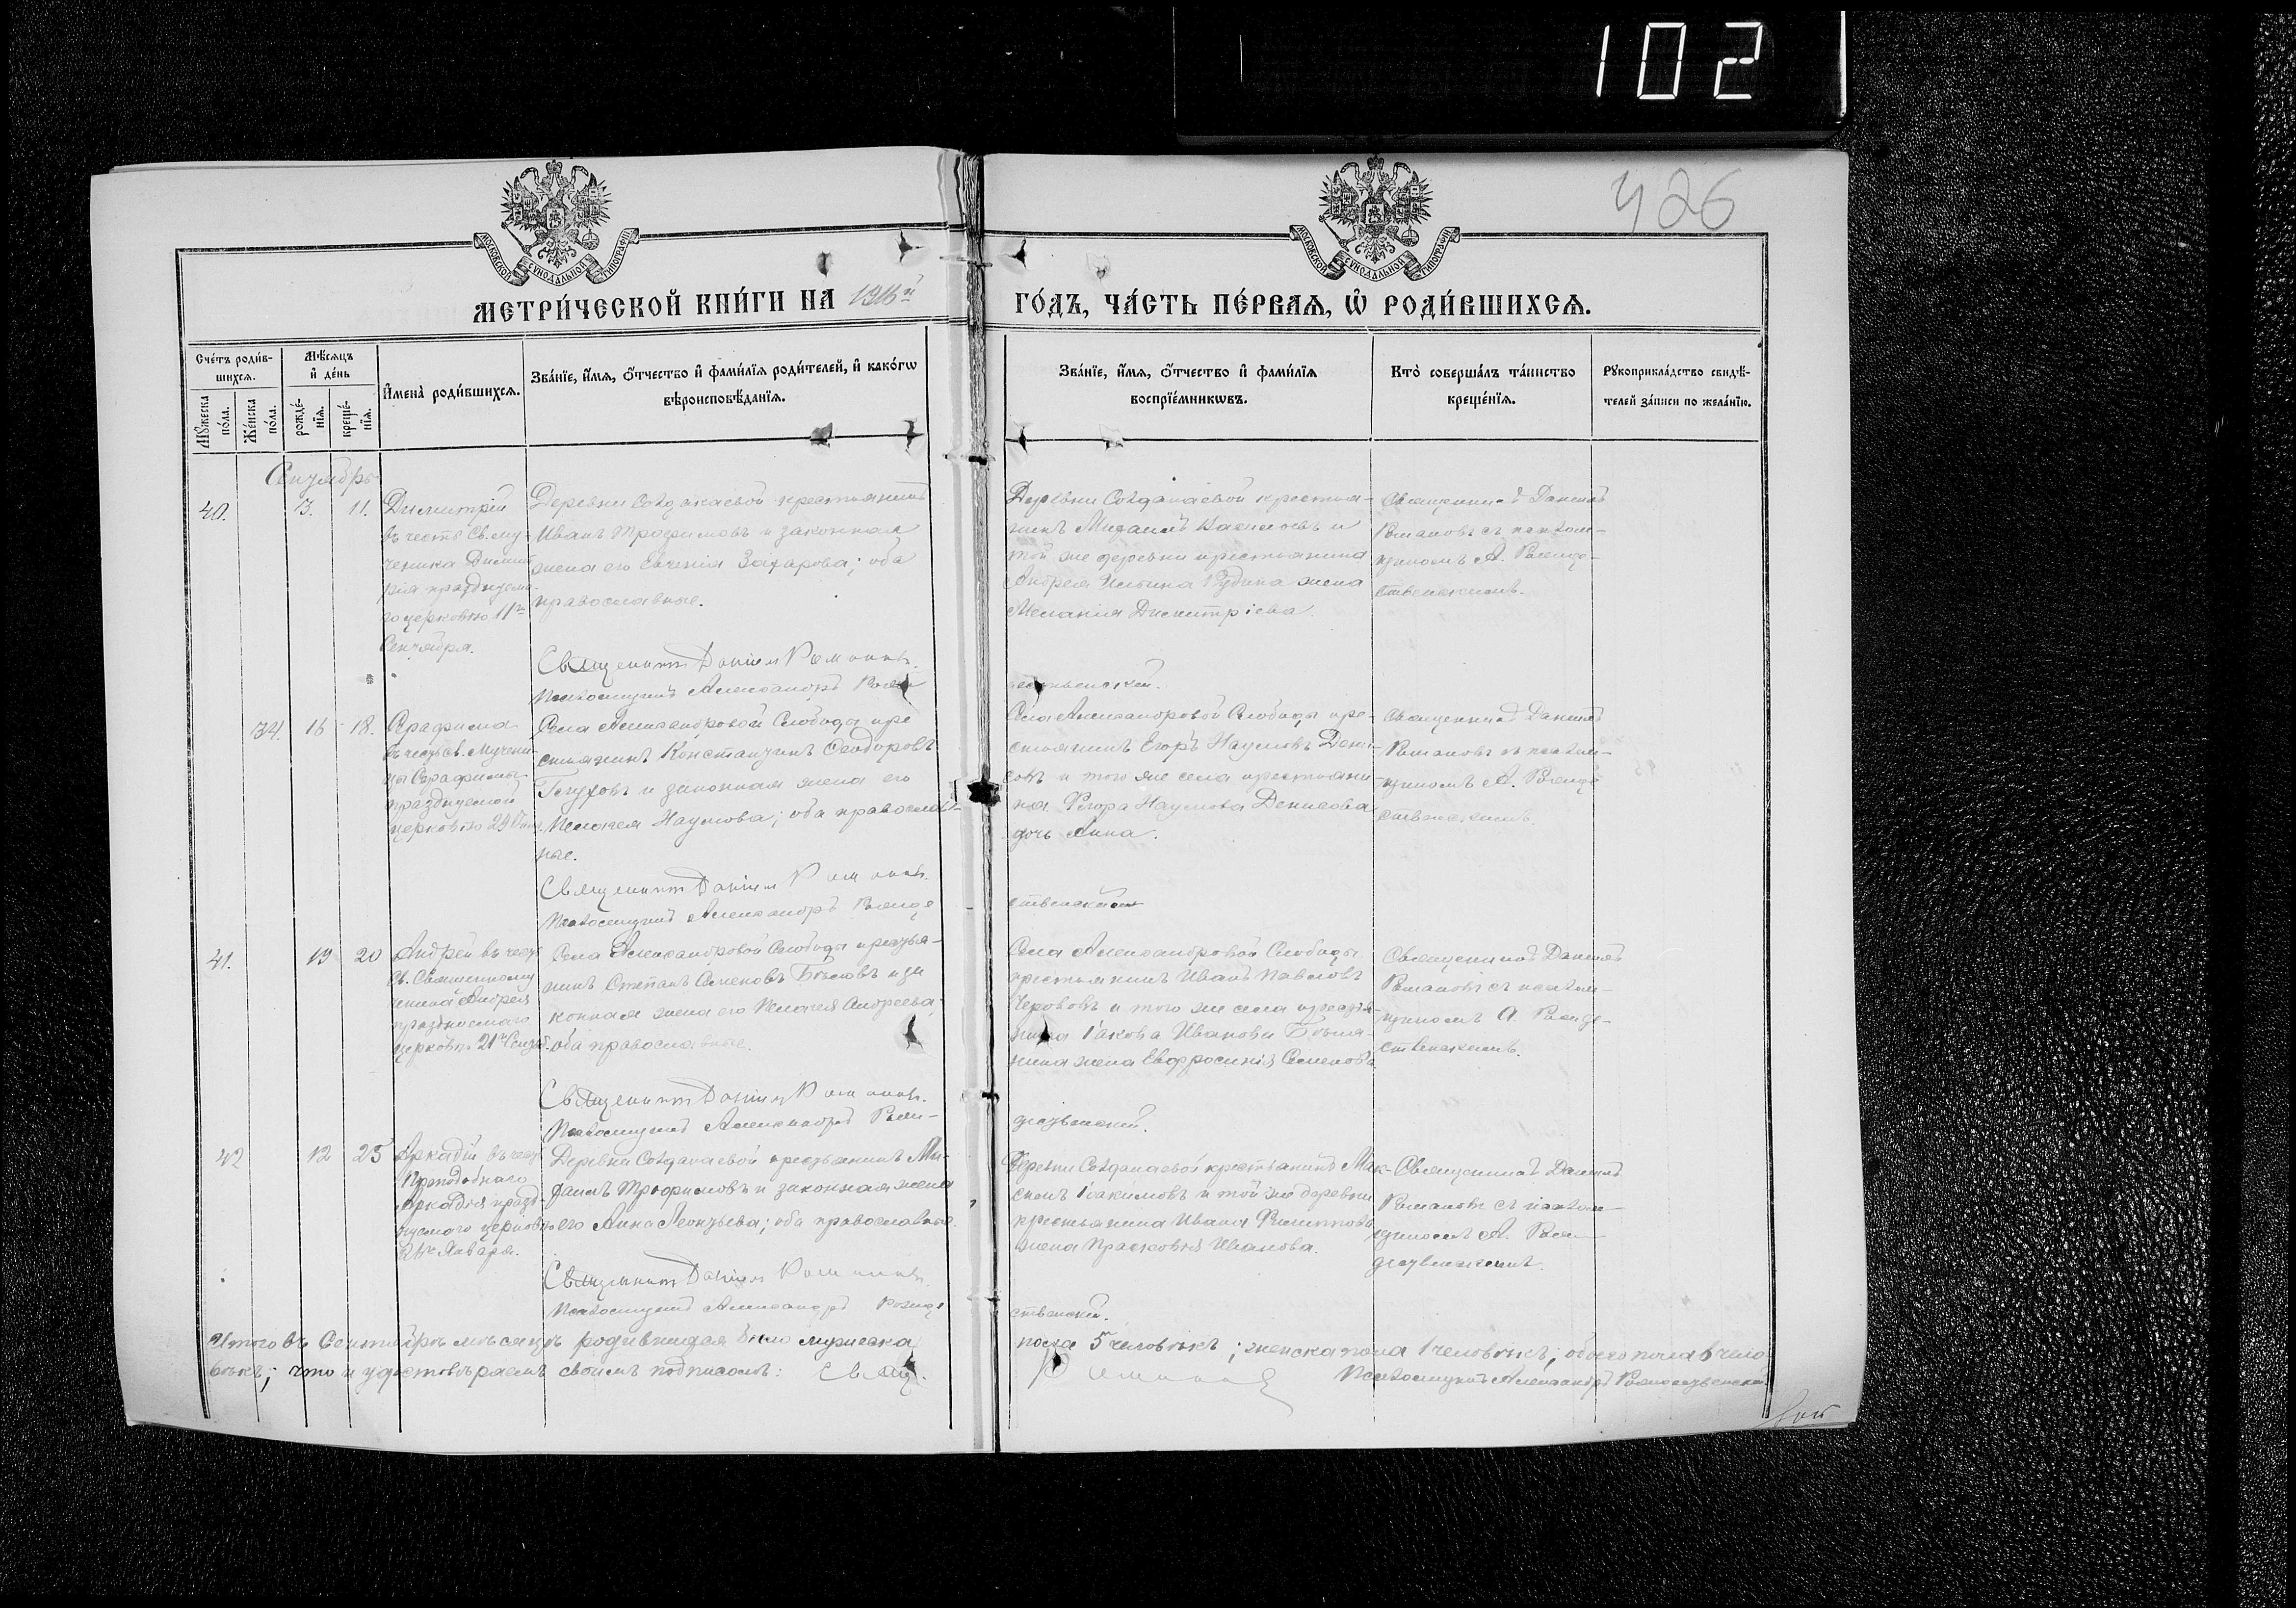 102
426
МОСКОВСКОЙ СѴНОДАЛЬНОЙ ТИПОГРАФІИ
МОСКОВСКОЙ СѴНОДАЛЬНОЙ ТИПОГРАФІИ
МЕТРИ́ЧЕСКОЙ КНИ́ГИ НА 1916й
ГО́ДЪ, ЧА́СТЬ ПЕ́РВАѦ, Ѡ РОДИ́ВШИХСѦ.
Сче́тъ роди́в-
шихсѧ.
Мꙋ́жеска по́ла.
Же́нска по́ла.
Мѣ́сѧцъ и де́нь
рожде́-нїѧ.
креще́-нїѧ.
Имена̀ роди́вшихсѧ.
Зва́нїе, и́мѧ, ѻ́тчество и фами́лїѧ роди́телей, и како́гѡ
вѣроисповѣ́данїѧ.
Зва́нїе, и́мѧ, ѻ́тчество и фами́лїѧ
воспрїе́мникѡвъ.
Кто̀ соверша́лъ та́инство
креще́нїѧ.
Рꙋкоприкла́дство свидѣ́-
телей за́писи по жела́нїю.
Сентябрь
40.
3.
11.
Димитрій
въ честь Св. му-
ченика Димит
рія праздуема
го церковію 11го
Сентября.
Деревни крестьянинъ
Иванъ Трофимовъ и законная
жена его Евгенія Захарова; оба
православные.
Священникъ Даніилъ Романовъ.
Псаломщикъ Александръ Рожде
Деревни крестья-
нинъ Михаилъ и
той же деревни крестьянина
Андрея Ильина жена
Меланія Димитріева.
ственскій.
Священникъ Даніилъ
Романовъ съ псалом-
щикомъ А. Рожде-
ственскимъ.
34.
16
18.
Серафима
въ честь св. Мучени-
цы Серафимы
празднуемой
церковію 29
Села Александровой Слободы кре
стьянинъ Константинъ Ѳеодоровъ
и законная жена его
Пелагея Наумова; оба православ-
ные.
Священникъ Даніилъ Романовъ.
Псаломщикъ Александръ Рожде
Села Александровой Слободы кре-
стьянинъ Егоръ Наумовъ Дени-
совъ и того же села крестьяни-
на Наумова Денисова
дочь Анна.
ственскій
Священникъ Даніилъ
Романовъ съ псалом-
щикомъ А. Рожде
ственскимъ.
41.
19
20
Андрей въ честь
Св. Священному
ченика Андрея
празднуемаго
церковію 21го Сентяб.
Села Александровой Слободы крестья-
нинъ Степанъ Семеновъ и за
конная жена его Пелагея Андреева;
оба православные.
Священникъ Даніилъ Романовъ.
Псаломщикъ Александръ Рож-
Села Александровой Слободы
крестьянинъ Иванъ Павловъ
и того же села крестья-
нина Іакова Иванова
жена Евфросинія Семенова
дественскій.
Священникъ Даніилъ
Романовъ съ псалом-
щикомъ А. Рожде-
ственскимъ.
42
12
25
Аркадій въ честь
Преподобнаго
Аркадія празд-
нуемаго церковію
Января.
Деревни крестьянинъ Ми-
хаилъ Трофимовъ и законная жена
его Анна Леонтьева; оба православные.
Священникъ Даніилъ Романовъ.
Псаломщикъ Александръ Рожде
Деревни крестьянинъ Мак-
симъ Іоакимовъ и той же деревни
крестьянина Ивана Филиппова
жена Прасковія Иванова.
ственскій.
Священникъ Даніилъ
Романовъ съ псалом-
щикомъ А. Рож-
дественскимъ.
Итого въ Сентябрѣ мѣсяцѣ родившихся было мужеска
пола 5 человѣкъ; женска пола 1 человѣкъ; обоего пола 6 чело
вѣкъ; что и удостовѣряемъ своимъ подписомъ: Свящ.
Романовъ Псаломщикъ Александръ Рождественскій